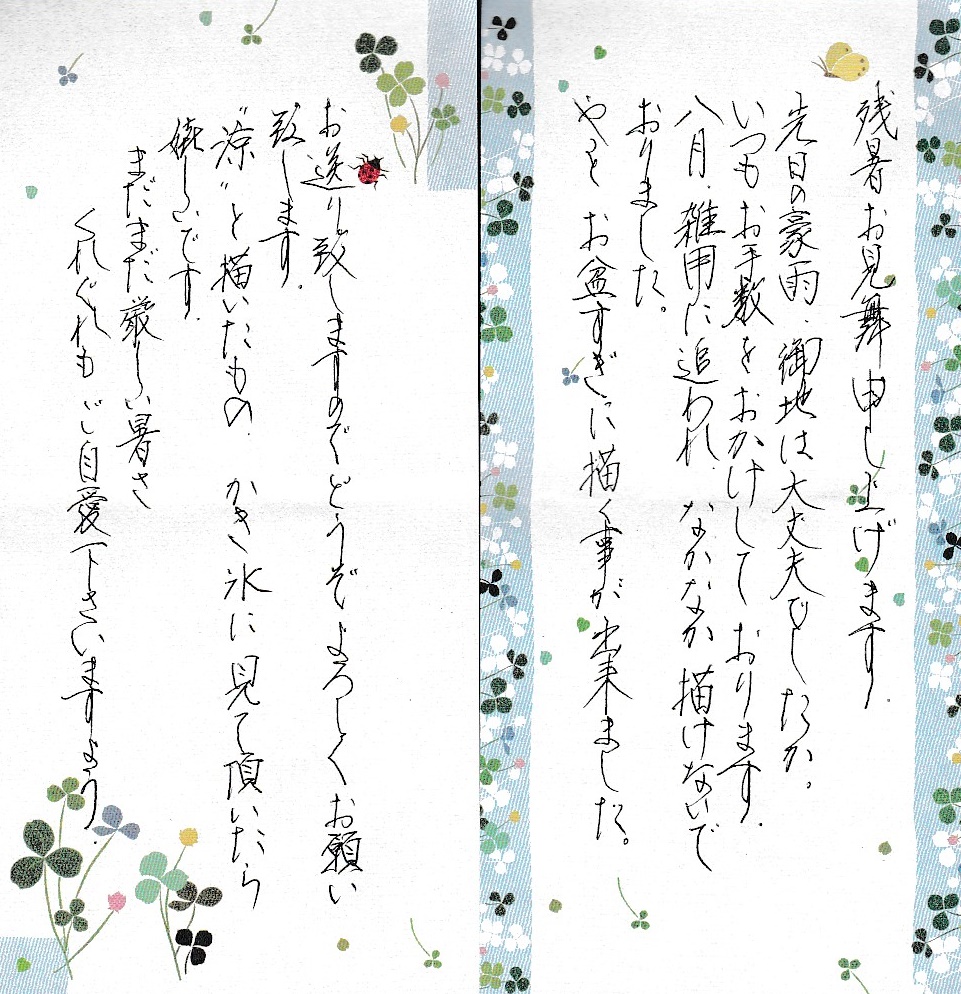 残暑お見舞申し上げます.
先日の豪雨.御地は大丈夫でしたか。
いつもお手数をおかけしております.
八月.雑用に追われ.なかなか描けないで
おりました。
やっとお盆すぎに描く事が出来ました。
お送り致しますのでどうぞよろしくお願い
致します.
"涼"と描いたもの.かき氷に見て頂いたら
嬉しいです.
まだまだ厳しい暑さ
くれぐれもご自愛下さいますよう.